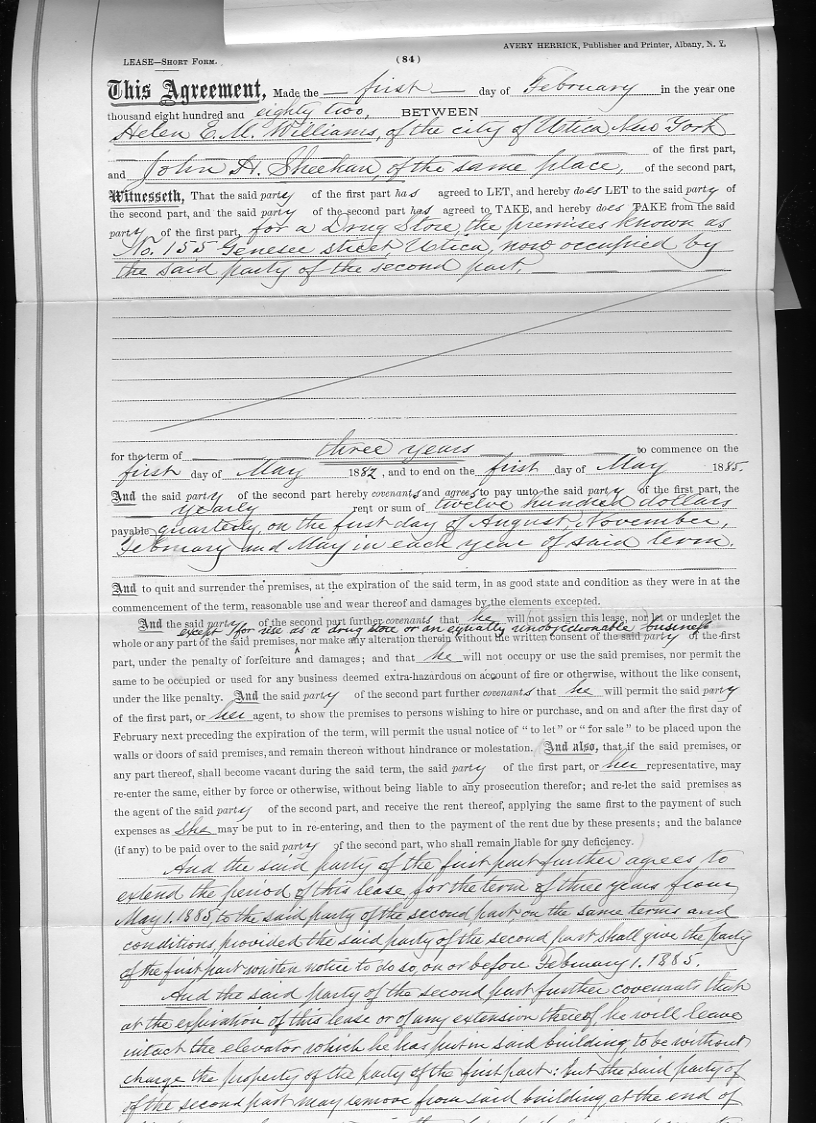 AVERY HERRICK, Publisher and Printer, Albany, N. Y.
LEASE—SHORT FORM.
(84)
This Agreement, Made the first day of February in the year one
thousand eight hundred and eighty two, BETWEEN
Helen E. M. Williams, of the city of Utica New York
of the first part,
and John H. Sheehan, of the same place, of the second part,
Witnesseth, That the said party of the first part has agreed to LET, and hereby does LET to the said party of
the second part, and the said party of the second part has agreed to TAKE, and hereby does TAKE from the said
party of the first part, for a Drug Store, the premises known as
No. 155 Genesee street, Utica, now occupied by
the said party of the second part,
for the term of three years to commence on the
first day of May 1882, and to end on the first day of May 1885.
And the said party of the second part hereby covenants and agrees to pay unto the said party of the first part, the
yearly rent or sum of twelve hundred dollars
payable quarterly, on the first day of August, November,
February and May in each year of said term.
And to quit and surrender the premises, at the expiration of the said term, in as good state and condition as they were in at the
commencement of the term, reasonable use and wear thereof and damages by the elements excepted.
And the said party of the second part further covenants that he will not assign this lease, nor let or underlet the
except for use as a drug store or an equally unobjectionable business
whole or any part of the said premises, nor make any alteration therein without the written consent of the said party of the first
part, under the penalty of forfeiture and damages; and that he will not occupy or use the said premises, nor permit the
same to be occupied or used for any business deemed extra-hazardous on account of fire or otherwise, without the like consent,
under the like penalty. And the said party of the second part further covenants that he will permit the said party
of the first part, or her agent, to show the premises to persons wishing to hire or purchase, and on and after the first day of
February next preceding the expiration of the term, will permit the usual notice of "to let" or "for sale" to be placed upon the
walls or doors of said premises, and remain thereon without hindrance or molestation. And also, that if the said premises, or
any part thereof, shall become vacant during the said term, the said party of the first part, or her representative, may
re-enter the same, either by force or otherwise, without being liable to any prosecution therefor; and re-let the said premises as
the agent of the said party of the second part, and receive the rent thereof, applying the same first to the payment of such
expenses as she may be put to in re-entering, and then to the payment of the rent due by these presents; and the balance
(if any) to be paid over to the said party of the second part, who shall remain liable for any deficiency.
And the said party of the first part further agrees to
extend the period of this lease for the term of three years from
May 1. 1885, to the said party of the second part, on the same terms and
conditions, provided the said party of the second part shall give the party
of the first part written notice to do so, on or before February 1. 1885.
And the said party of the second part further covenants that
at the expiration of this lease or of any extension thereof, he will leave
intact the elevator which he has put in said building, to be without
charge the property of the party of the first part: but the said party of
of the second part may remove from said building, at the end of